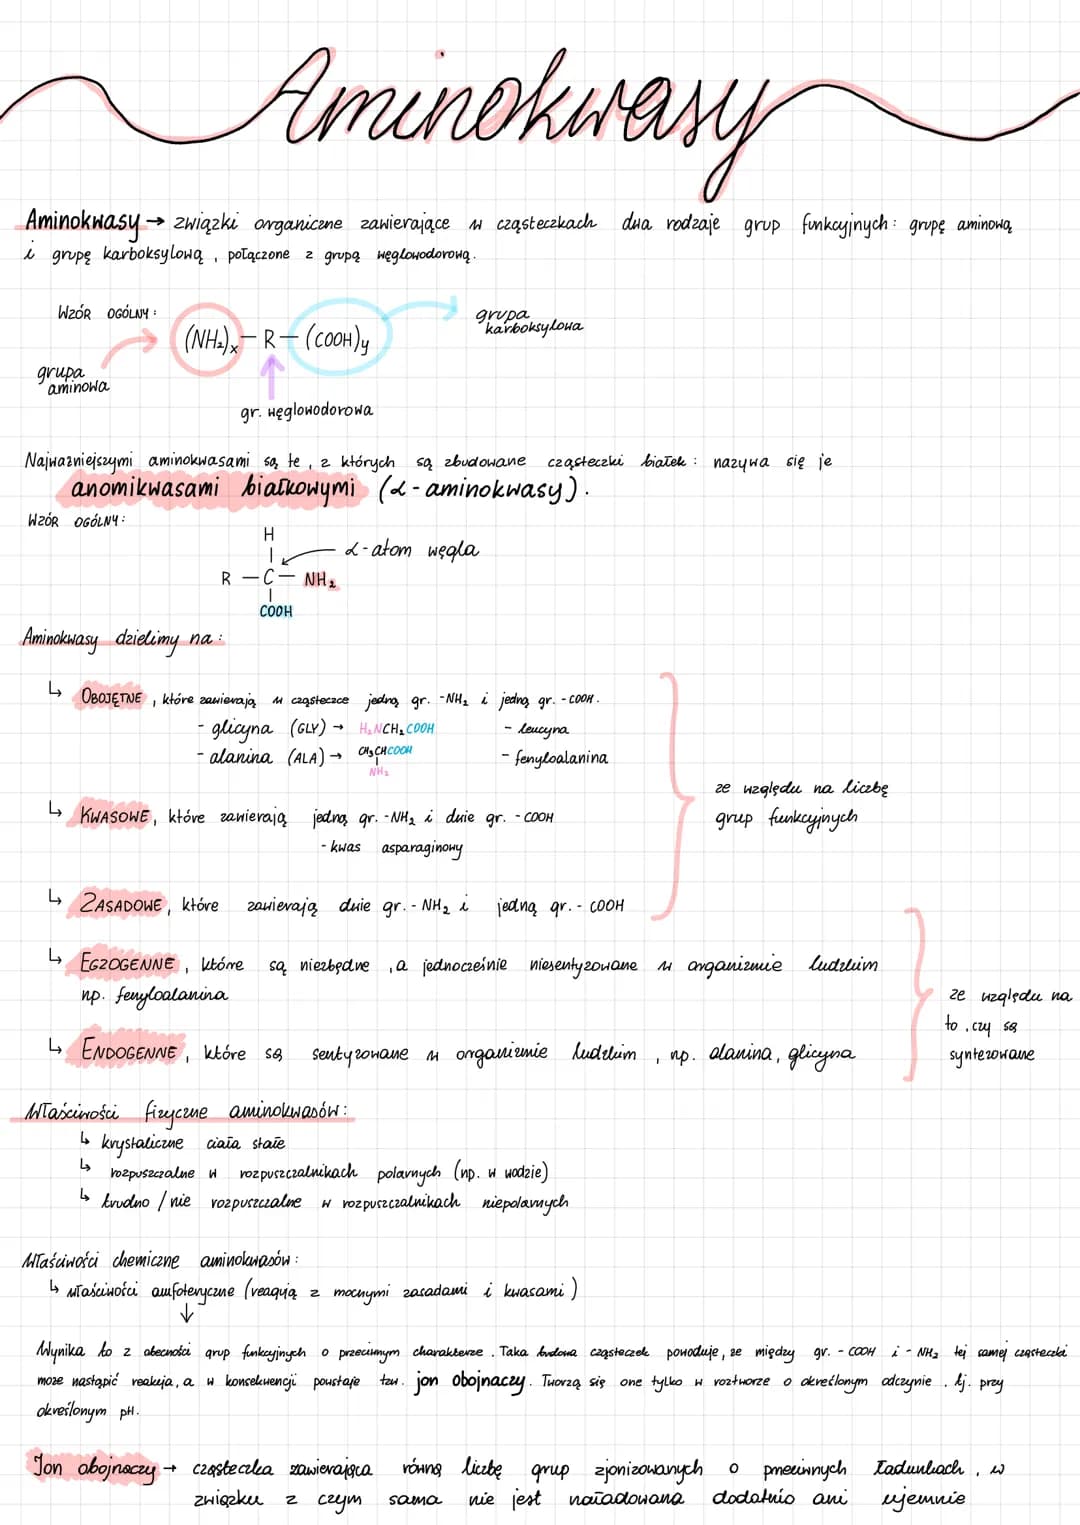 Aminokwasy
Aminokwasy → związki organiczne zawierające w cząsteczkach dwa rodzaje grup funkcyjnych: grupę aminową
i grupę karboksylową, połączone z grupą węglowodorową.
WZÓR OGÓLNY:
grupa karboksylowa
(NH₂)ₓ — R — (COOH)y
grupa aminowa
gr. węglowodorowa
Najważniejszymi aminokwasami są te, z których są zbudowane cząsteczki białek: nazywa się je
anomikwasami białkowymi (α-aminokwasy).
WZÓR OGÓLNY:
H
α-atom węgla
R — C — NH₂
COOH
Aminokwasy dzielimy na:
↳ OBOJĘTNE, które zawierają w cząsteczce jedną gr. -NH₂ i jedną gr. -COOH.
- glicyna (GLY) → H₂NCH₂COOH - leucyna
- alanina (ALA) → CH₃CHCOOH - fenyloalanina
NH₂
ze względu na liczbę
grup funkcyjnych
↳ KWASOWE, które zawierają jedną gr. -NH₂ i dwie gr. -COOH
- kwas asparaginowy
↳ ZASADOWE, które zawierają dwie gr. -NH₂ i jedną gr. -COOH
↳ EGZOGENNE, które są niezbędne, a jednocześnie niesentyzowane w organizmie ludzkim
np. fenyloalanina
ze względu na
to, czy są
syntezowane
↳ ENDOGENNE, które są sentyzowane w organizmie ludzkim, np. alanina, glicyna
Właściwości fizyczne aminokwasów:
↳ krystaliczne ciała stałe
↳ rozpuszczalne w rozpuszczalnikach polarnych (np. w wodzie)
↳ trudno / nie rozpuszczalne w rozpuszczalnikach niepolarnych
Właściwości chemiczne aminokwasów:
↳ właściwości amfoteryczne (reagują z mocnymi zasadami i kwasami)
↓
Wynika to z obecności grup funkcyjnych o przeciwnym charakterze. Taka budowa cząsteczek powoduje, że między gr. -COOH i -NH₂ tej samej cząsteczki
może nastąpić reakcja, a w konsekwencji powstaje tzw. jon obojnaczy. Tworzą się one tylko w roztworze o określonym odczynie, tj. przy
określonym pH.
Jon obojnaczy → cząsteczka zawierająca równą liczbę grup zjonizowanych o przeciwnych ładunkach, w
związku z czym sama nie jest naładowana dodatnio ani ujemnie